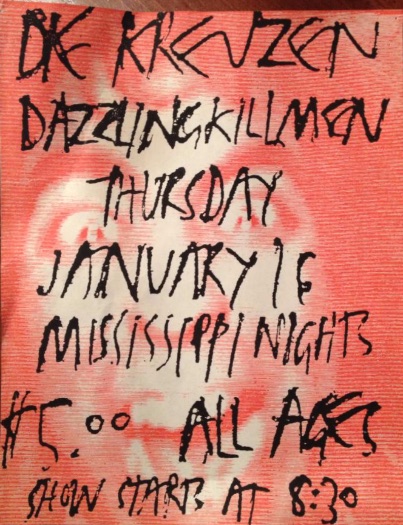 DIE KREUZEN
DAZZLING KILLMEN
THURSDAY
JANUARY 16
MISSISSIPPI NIGHTS
$5.00 ALL AGES
SHOW STARTS AT 8:30